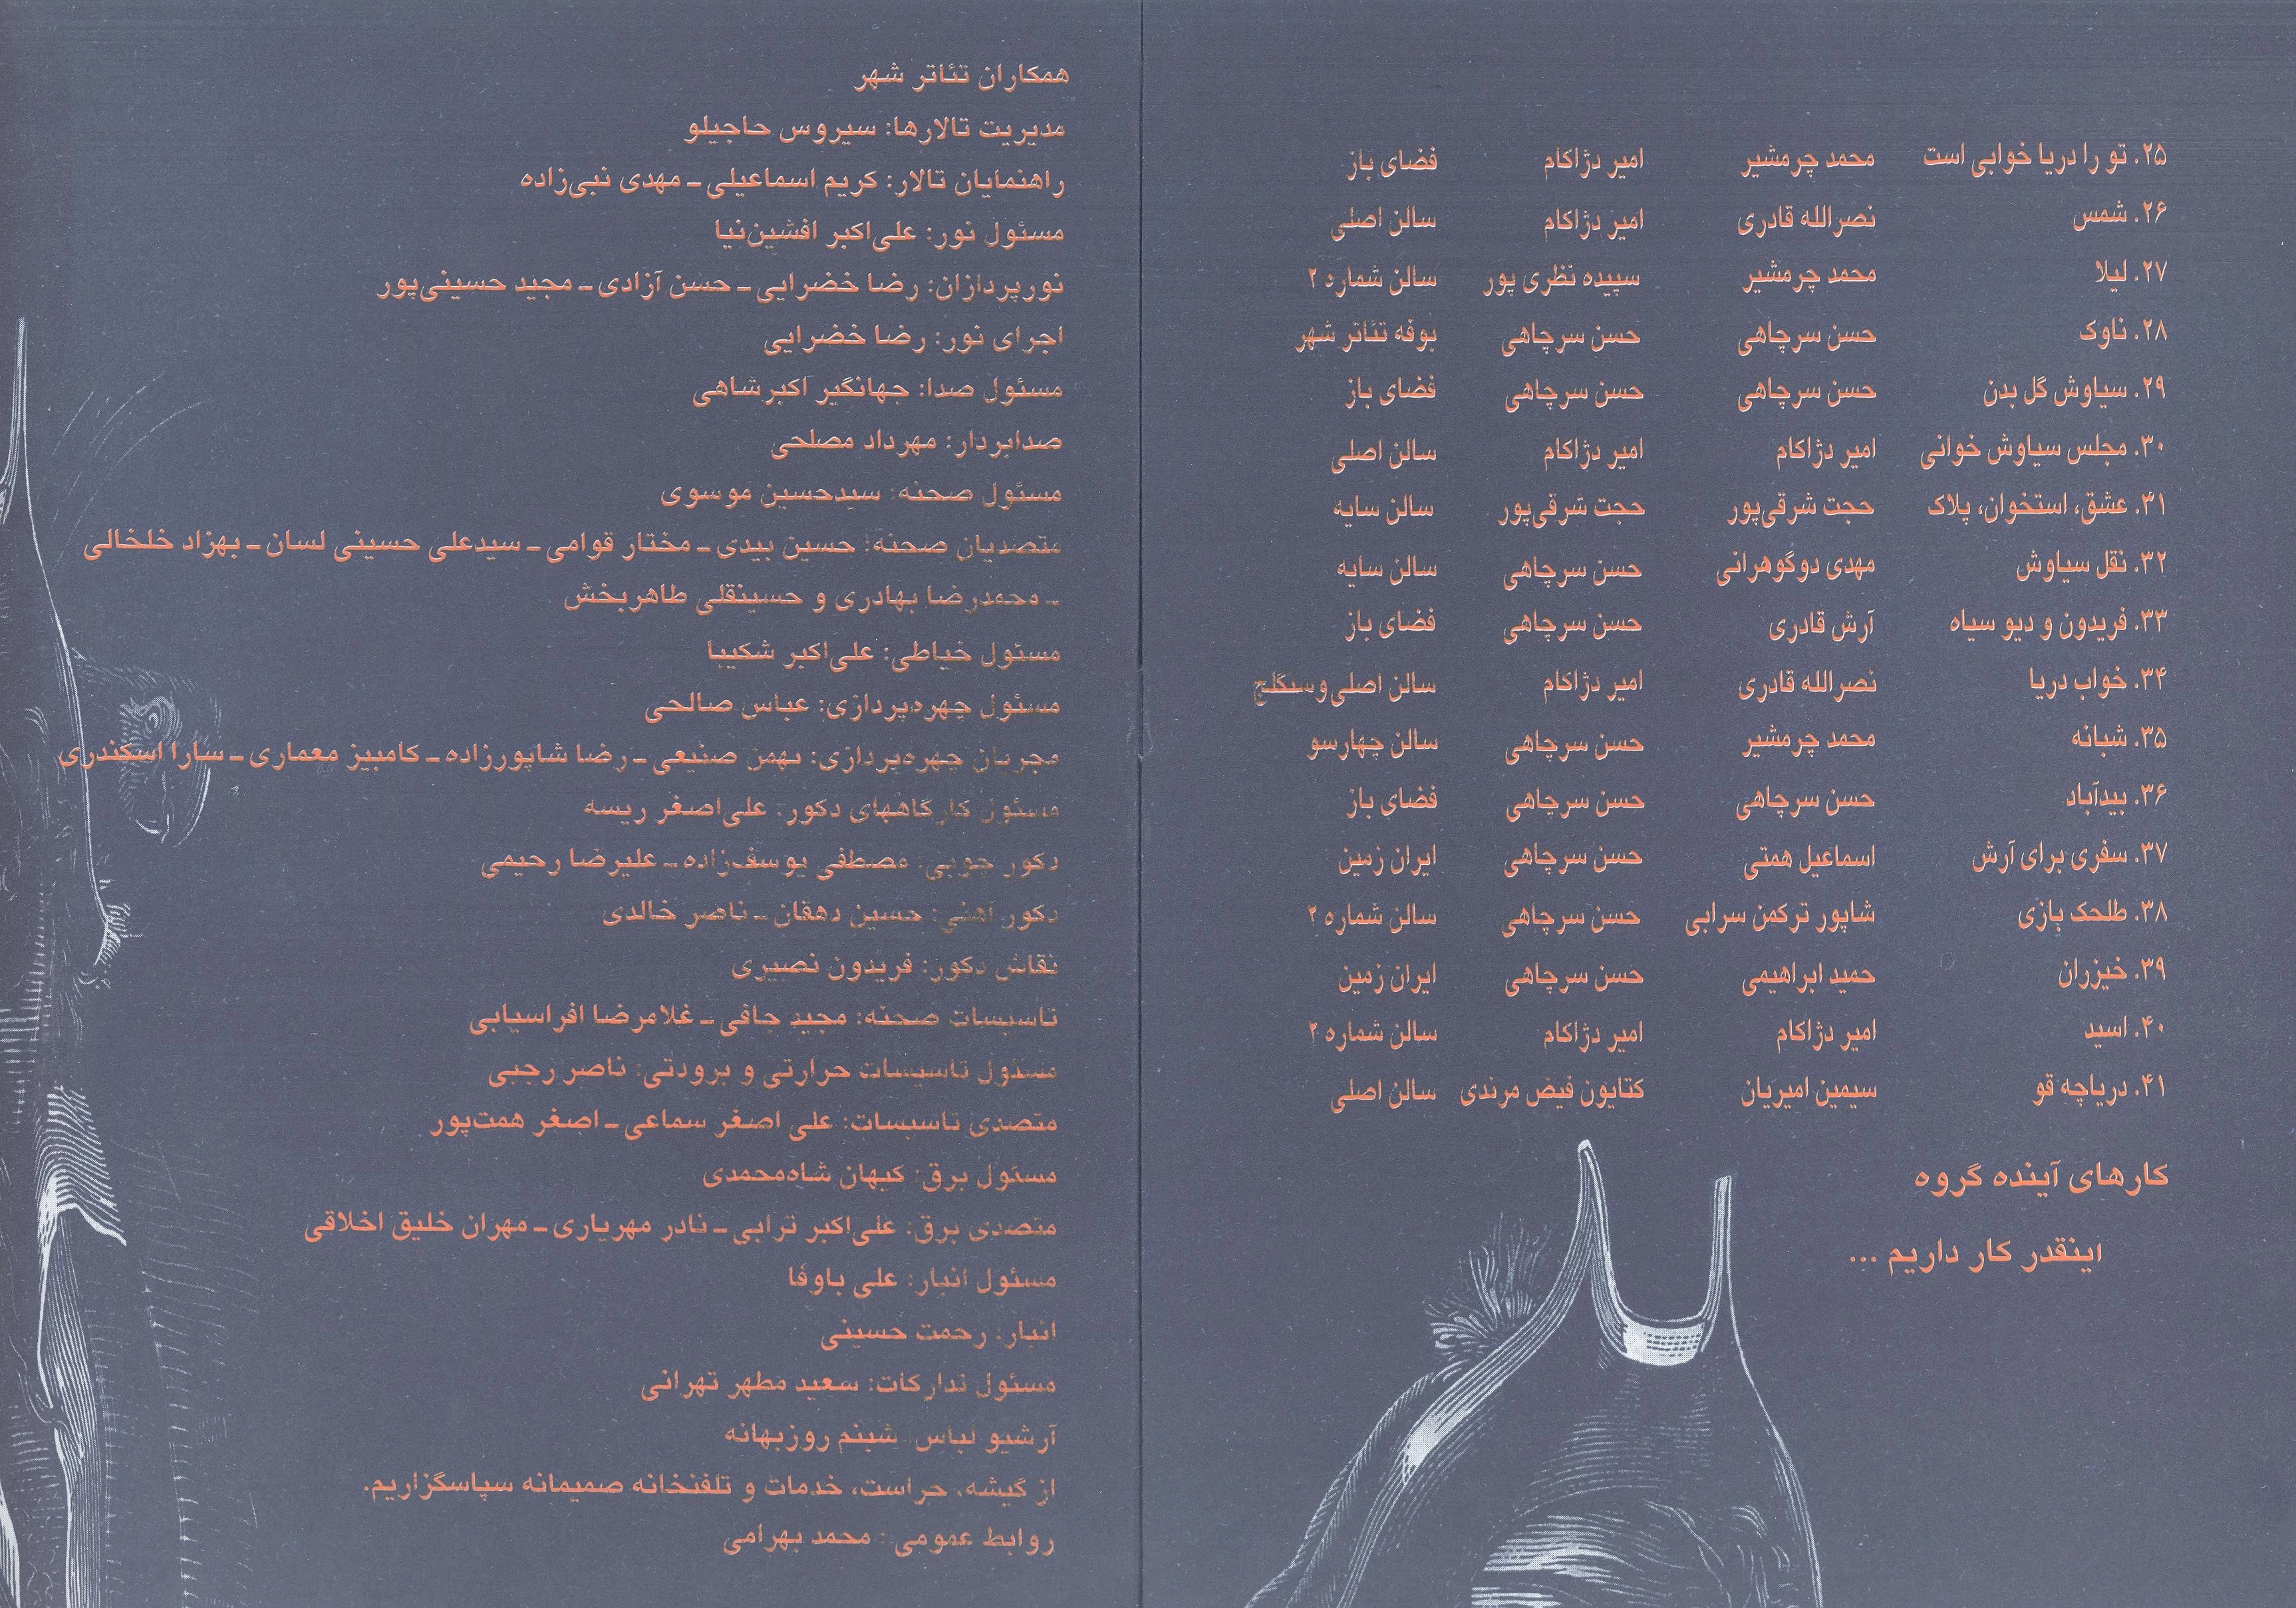 ۲۵. تو را دریا خوابی است محمد چرمشیر امیر دژاکام فضای باز
۲۶. شمس نصرالله قادری امیر دژاکام سالن اصلی
۲۷. لیلا محمد چرمشیر سپیده نظری پور سالن شماره ۲
۲۸. ناوک حسن سرچاهی حسن سرچاهی بوفه تئاتر شهر
۲۹. سیاوش گل بدن حسن سرچاهی حسن سرچاهی فضای باز
۳۰. مجلس سیاوش خوانی امیر دژاکام امیر دژاکام سالن اصلی
۳۱. عشق، استخوان، پلاک حجت شرقی‌پور حجت شرقی‌پور سالن سایه
۳۲. نقل سیاوش مهدی دوگوهرانی حسن سرچاهی سالن سایه
۳۳. فریدون و دیو سیاه آرش قادری حسن سرچاهی فضای باز
۳۴. خواب دریا نصرالله قادری امیر دژاکام سالن اصلی‌وسنگلج
۳۵. شبانه محمد چرمشیر حسن سرچاهی سالن چهارسو
۳۶. بیدآباد حسن سرچاهی حسن سرچاهی فضای باز
۳۷. سفری برای آرش اسماعیل همتی حسن سرچاهی ایران زمین
۳۸. طلحک بازی شاپور ترکمن سرابی حسن سرچاهی سالن شماره ۲
۳۹. خیزران حمید ابراهیمی حسن سرچاهی ایران زمین
۴۰. اسید امیر دژاکام امیر دژاکام سالن شماره ۲
۴۱. دریاچه قو سیمین امیریان کتایون فیض مرندی سالن اصلی
کارهای آینده گروه
اینقدر کار داریم ...
همکاران تئاتر شهر
مدیریت تالارها: سیروس حاجیلو
راهنمایان تالار: کریم اسماعیلی ـ مهدی نبی‌زاده
مسئول نور: علی‌اکبر افشین‌نیا
نورپردازان: رضا خضرایی ـ حسن آزادی ـ مجید حسینی‌پور
اجرای نور: رضا خضرایی
مسئول صدا: جهانگیر اکبرشاهی
صدابردار: مهرداد مصلحی
مسئول صحنه: سیدحسین موسوی
متصدیان صحنه: حسین بیدی ـ مختار قوامی ـ سیدعلی حسینی لسان ـ بهزاد خلخالی
ـ محمدرضا بهادری و حسینقلی طاهربخش
مسئول خیاطی: علی‌اکبر شکیبا
مسئول چهره‌پردازی: عباس صالحی
مجریان چهره‌پردازی: بهمن صنیعی ـ رضا شاپورزاده ـ کامبیز معماری ـ سارا اسکندری
مسئول کارگاههای دکور: علی‌اصغر ریسه
دکور چوبی: مصطفی یوسف‌زاده ـ علیرضا رحیمی
دکور آهنی: حسین دهقان ـ ناصر خالدی
نقاش دکور: فریدون نصیری
تاسیسات صحنه: مجید جافی ـ غلامرضا افراسیابی
مسئول تاسیسات حرارتی و برودتی: ناصر رجبی
متصدی تاسیسات: علی اصغر سماعی ـ اصغر همت‌پور
مسئول برق: کیهان شاه‌محمدی
متصدی برق: علی‌اکبر ترابی ـ نادر مهریاری ـ مهران خلیق اخلاقی
مسئول انبار: علی باوفا
انبار: رحمت حسینی
مسئول تدارکات: سعید مطهر تهرانی
آرشیو لباس: شبنم روزبهانه
از گیشه، حراست، خدمات و تلفنخانه صمیمانه سپاسگزاریم.
روابط عمومی: محمد بهرامی